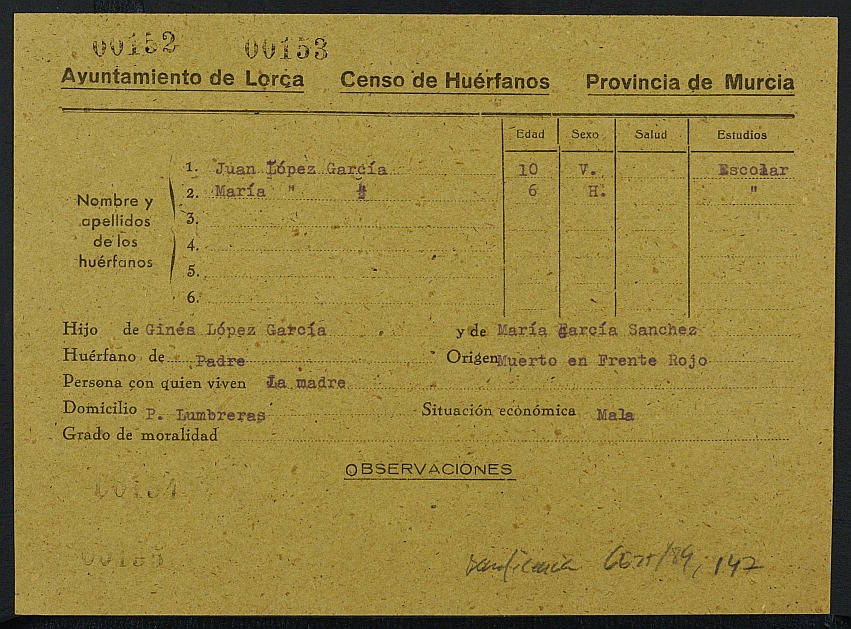 00152 00153
Ayuntamiento de Lorca Censo de Huérfanos Provincia de Murcia
Edad Sexo Salud Estudios
Nombre y apellidos de los huérfanos
1. Juan López García 10 V. Escolar
2. María " " 6 H. "
3.
4.
5.
6.
Hijo de Ginés López García y de María García Sanchez
Huérfano de Padre Origen Muerto en Frente Rojo
Persona con quien viven La madre
Domicilio P. Lumbreras Situación económica Mala
Grado de moralidad
OBSERVACIONES
00154
00155
142